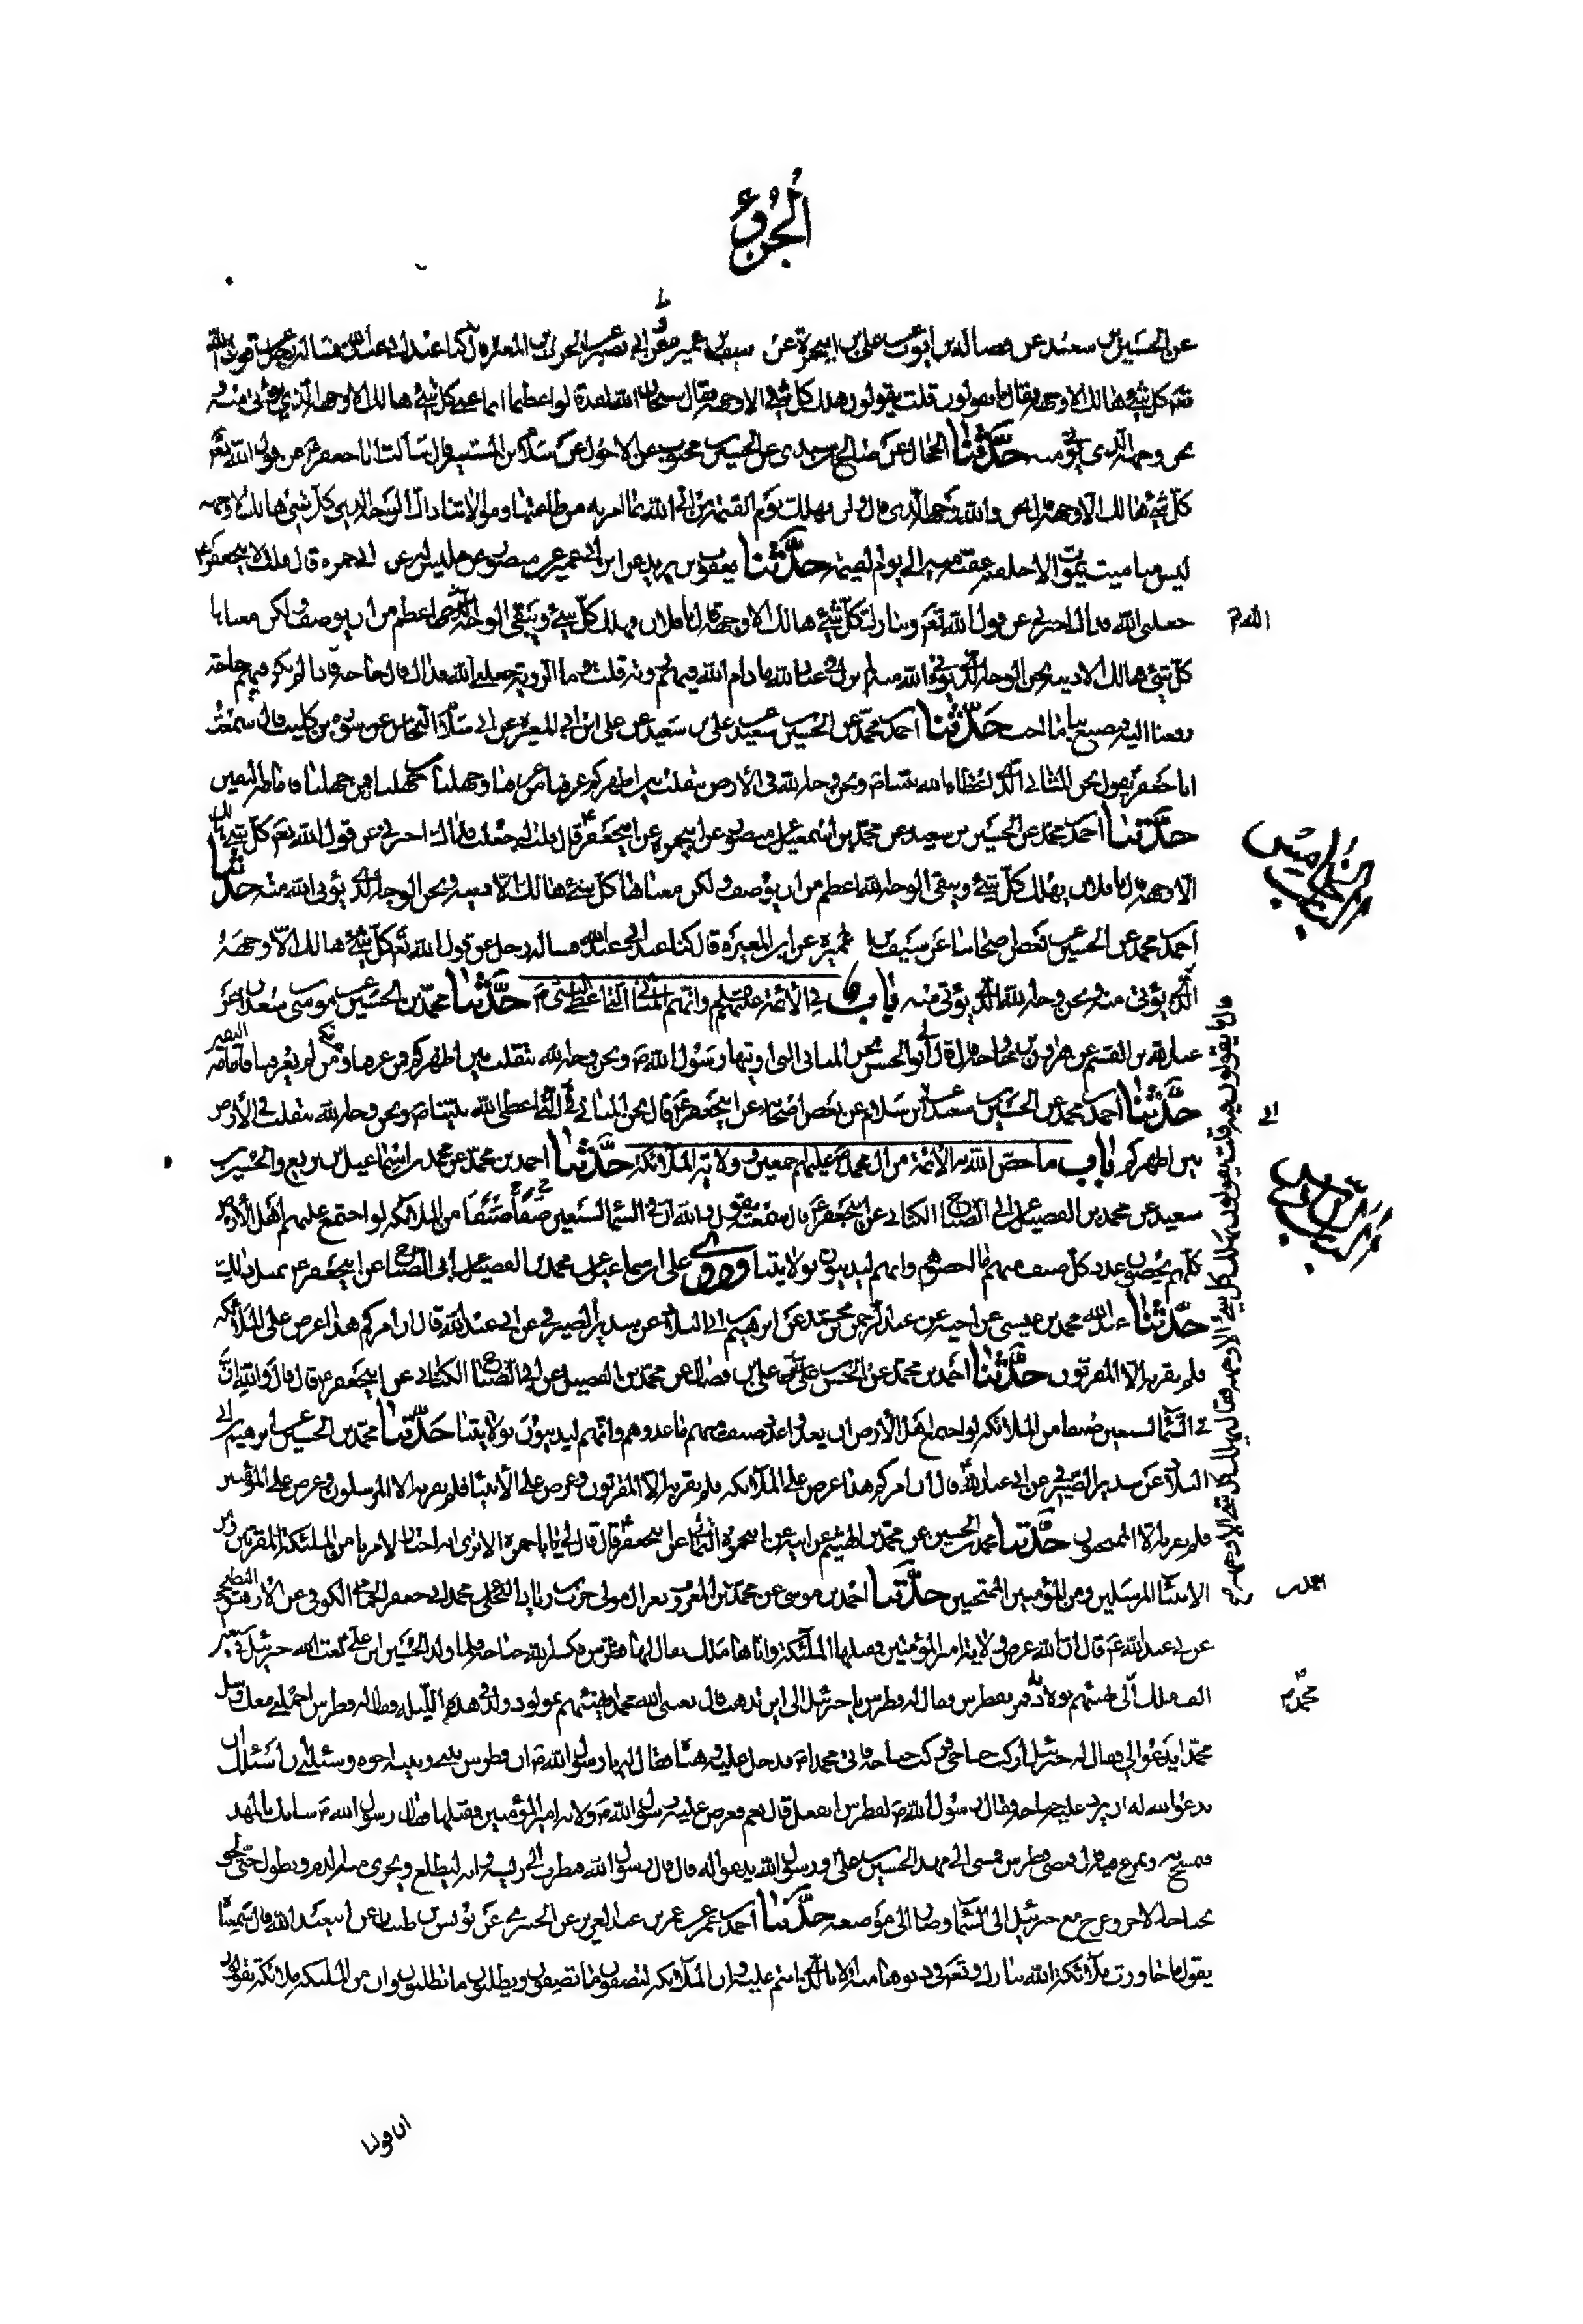 الجزؤ
عن الحسين بن سعيد عن فضاله بن ايوب عن علي بن ابيحمزة عن سيف بن عميرة عن ابي بصير عن الحرث بن المغيره قال كنا عند ابي عبدالله فساله رجل عن قول الله
تعم كل شئ هالك الا وجهه فقال ما يقولون قلت يقولون هلك كل شئ الا وجهه فقال سبحان الله لقد قالوا عظيما انما عنى كل شئ هالك الا وجهه الذي يؤتى منه
نحن وجهه الذى يؤتى منه حدثنا الحجال عن صالح بن السندى عن الحسن بن محبوب عن الاحول عن سلام بن المستنير قال سألت ابا جعفر ع عن قول الله تعم
كل شئ هالك الا وجهه قال نحن والله وجهه الذى قال ولن يهلك يوم القيمة من اتى الله بما امر به من طاعتنا وموالاتنا ذاك الوجه الذى كل شئ هالك الا وجهه
ليس منا ميت يموت الا خلفه عقبه منه الى يوم القيمة حدثنا يعقوب بن يزيد عن ابن ابي عمير عن منصور عن جليس له عن ابي حمزه قال قلت لابيجعفر ع
جعلني الله فداك اخبرني عن قول الله تعم وتبارك كل شئ هالك الا وجهه قال يا فلان فيهلك كل شئ ويبقى الوجه الله اعظم من ان يوصف ولكن معناها
كل شئ هالك الا دينه نحن الوجه الذي يؤتى الله منه لم نزل في عباد الله ما دام الله فيهم روية قلت وما الروية جعلني الله فداك قال حاجة فاذا لم يكن له فيهم حاجة
رفعنا اليه فيصنع بنا ما احب حدثنا احمد بن محمد عن الحسين بن سعيد عن علي بن سعيد عن علي ابن ابي المغيره عن ابي سلام النخاس عن سورة بن كليب قال سمعت
ابا جعفر يقول نحن المثاني الذي اعطاه الله نبينا ص ونحن وجه الله فى الارض نتقلب بين اظهركم عرفنا من عرفنا وجهلنا من جهلنا من جهلنا فامامه اليقين
حدثنا احمد بن محمد عن الحسين بن سعيد عن محمد بن اسمعيل عن منصور عن ابيحمزه عن ابيجعفر ع قال قلت له جعلت فداك اخبرني عن قول الله تعم كل شئ هالك
الا وجهه قال يا فلان يهلك كل شئ ويبقى الوجه الله اعظم من ان يوصف ولكن معناها كل شئ هالك الا دينه ونحن الوجه الذي يؤتى الله منه حدثنا
احمد بن محمد عن الحسين عن بعض اصحابنا عن سيف بن عميرة عن ابن المغيرة قال كنا عند ابي عبدالله فساله رجل عن قول الله تعم كل شئ هالك الا وجهه
الذي يؤتى منه ونحن وجه الله الذي يؤتى منه باب في الائمة عليهم السلم وانهم المثاني التي اعطى النبي ص حدثنا محمد بن الحسين عن موسى بن سعدان عن
عبدالله بن القسم عن هرون بن خارجه قال قال لي ابو الحسن نحن المثاني التى اوتيها رسول الله ص ونحن وجه الله نتقلب بين اظهركم فمن عرفنا ومن لم يعرفنا فامامه اليقين
حدثنا احمد بن محمد عن الحسين بن سعيد عن ابن سلام عن بعض اصحابه عن ابيجعفر ع قال نحن المثاني التي اعطى الله نبينا ص ونحن وجه الله نتقلب في الارض
بين اظهركم باب ما خص الله به الائمة من ال محمد عليهم اجمعين وولاية الملائكة حدثنا احمد بن محمد عن محمد بن اسماعيل بن بزيع والحسين بن
سعيد عن محمد بن الفضيل عن ابي الصباح الكناني عن ابيجعفر ع قال سمعته يقول والله ان في السماء لسبعين صنفا من الملائكه لو اجتمع عليهم اهل الارض
كلهم يحصون عدد كل صنف منهم ما احصوهم وانهم ليدينون بولايتنا وروى علي بن اسماعيل عن محمد بن الفضيل عن ابي الصباح عن ابيجعفر ع بمثل ذلك
حدثنا عبدالله بن محمد بن عيسى عن اخيه عن عبد الرحمن بن محمد عن ابرهيم بن ابي البلاد عن سدير الصيرفي عن ابي عبدالله قال ان امركم هذا عرض على الملائكه
فلم يقر به الا المقربون حدثنا احمد بن محمد عن الحسن بن علي بن فضال عن محمد بن الفضيل عن ابي الصباح الكناني عن ابيجعفر ع قال قال والله ان
في السماء لسبعين صنفا من الملائكه لو اجتمع اهل الارض ان يعدوا عدد صنف منهم ما عدوهم وانهم ليدينون بولايتنا حدثنا محمد بن الحسين عن ابرهيم بن ابي
البلاد عن سدير الصيرفي عن ابي عبدالله قال ان امركم هذا عرض على الملائكه فلم يقر به الا المقربون وعرض على الانبياء فلم يقر به الا المرسلون وعرض على المؤمنين
فلم يقر به الا الممتحنون حدثنا محمد بن الحسين عن محمد بن الهيثم عن ابيه عن ابيحمزة الثمالي عن ابيجعفر ع قال قال لي يا ابا حمزة الا ترى انه اختار لامرنا من الملئكة المقربين ومن
الانبياء المرسلين ومن المؤمنين الممتحنين حدثنا احمد بن موسى عن محمد المعروف بغزال مولى حرب بن زياد البجلي عن محمد ابي جعفر الحمامي الكوفي عن الازهر البطيخي
عن ابي عبدالله ع قال ان الله عرض ولاية امير المؤمنين فقبلها الملئكة واباها ملك يقال لها فطرس فكسر الله جناحه فلما ولد الحسين ابن علي بعث الله جبرئيل في سبعين
الف ملك الى محمد يهنئهم بولادته فمر بفطرس فقال له فطرس يا جبرئيل الى اين تذهب قال بعثني الله محمد يهنئهم بمولود ولد في هذه الليله فقال له فطرس احملني معك وسل
محمدا يدعو لي فقال له جبرئيل اركب جناحي فركب جناحه فاتى محمدا ص فدخل عليه وهناه فقال له يا رسول الله ص ان فطرس بيني وبينه اخوة وسئلني ان اسئلك ان
تدعو الله له ان يرد عليه جناحه فقال رسول الله ص لفطرس اتفعل قال نعم فعرض عليه رسول الله ص ولاية امير المؤمنين فقبلها فقال رسول الله ص شانك بالمهد
فتمسح به وتمرغ فيه قال فمضى فطرس فمشى الى مهد الحسين بن علي ورسول الله يدعو له قال قال رسول الله فنظرت الى ريشه وانه ليطلع ويجرى منه الدم ويطول حتى لحق
بجناحه الاخر وعرج مع جبرئيل الى السماء وصار الى موضعه حدثنا احمد بن عمر بن عبد العزيز عن الخيبري عن يونس بن ظبيان عن ابيعبد الله قال سمعته
يقول ما جاورت ملائكة الله تبارك وتعم في دنوها منه الا بالذي انتم عليه وان الملائكه لتصفون ما تصفون ويطلبون ما تطلبون وان من الملئكه ملائكة يقولون
ان قولنا